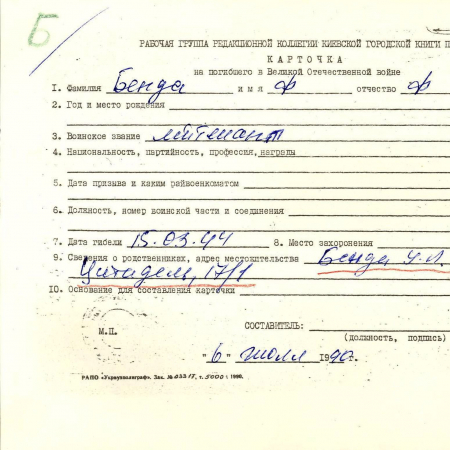 Б
РАБОЧАЯ ГРУППА РЕДАКЦИОННОЙ КОЛЛЕГИИ КИЕВСКОЙ ГОРОДСКОЙ КНИГИ П
КАРТОЧКА
на погибшего в Великой Отечественной войне
1. Фамилия Бенда имя Ф отчество Ф
2. Год и место рождения
3. Воинское звание лейтенант
4. Национальность, партийность, профессия, награды
5. Дата призыва и каким райвоенкоматом
6. Должность, номер воинской части и соединения
7. Дата гибели 15.03.44 8. Место захоронения
9. Сведения о родственниках, адрес местожительства Бенда
Цитадель, 17/1
10. Основание для составления карточки
СОСТАВИТЕЛЬ:
(должность, подпись)
М.П.
"6" июля 1990
РАПО «Укрвуполиграф». Зак. № 03317, т. 5000 г. 1990.